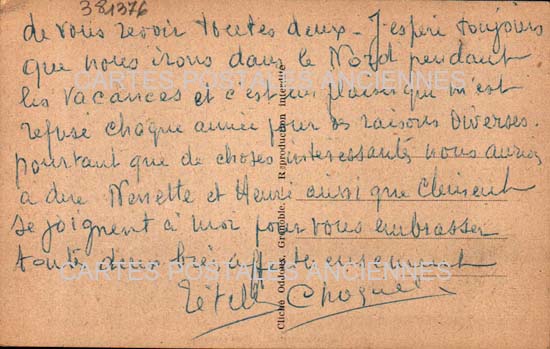 381376
de vous revoir toutes deux - J'espère toujours
que nous irons dans le Nord pendant
les vacances et c'est un plaisir qui m'est
refusé chaque année pour des raisons diverses.
pourtant que de choses intéressantes nous aurions
a dire Nenette et Henri ainsi que Clément
se joignent à moi pour vous embrasser
toute deux affectueusement
CARTES POSTALES ANCIENNES
CARTES POSTALES ANCIENNES
Cliché Oddoux, Grenoble. Reproduction Interdite